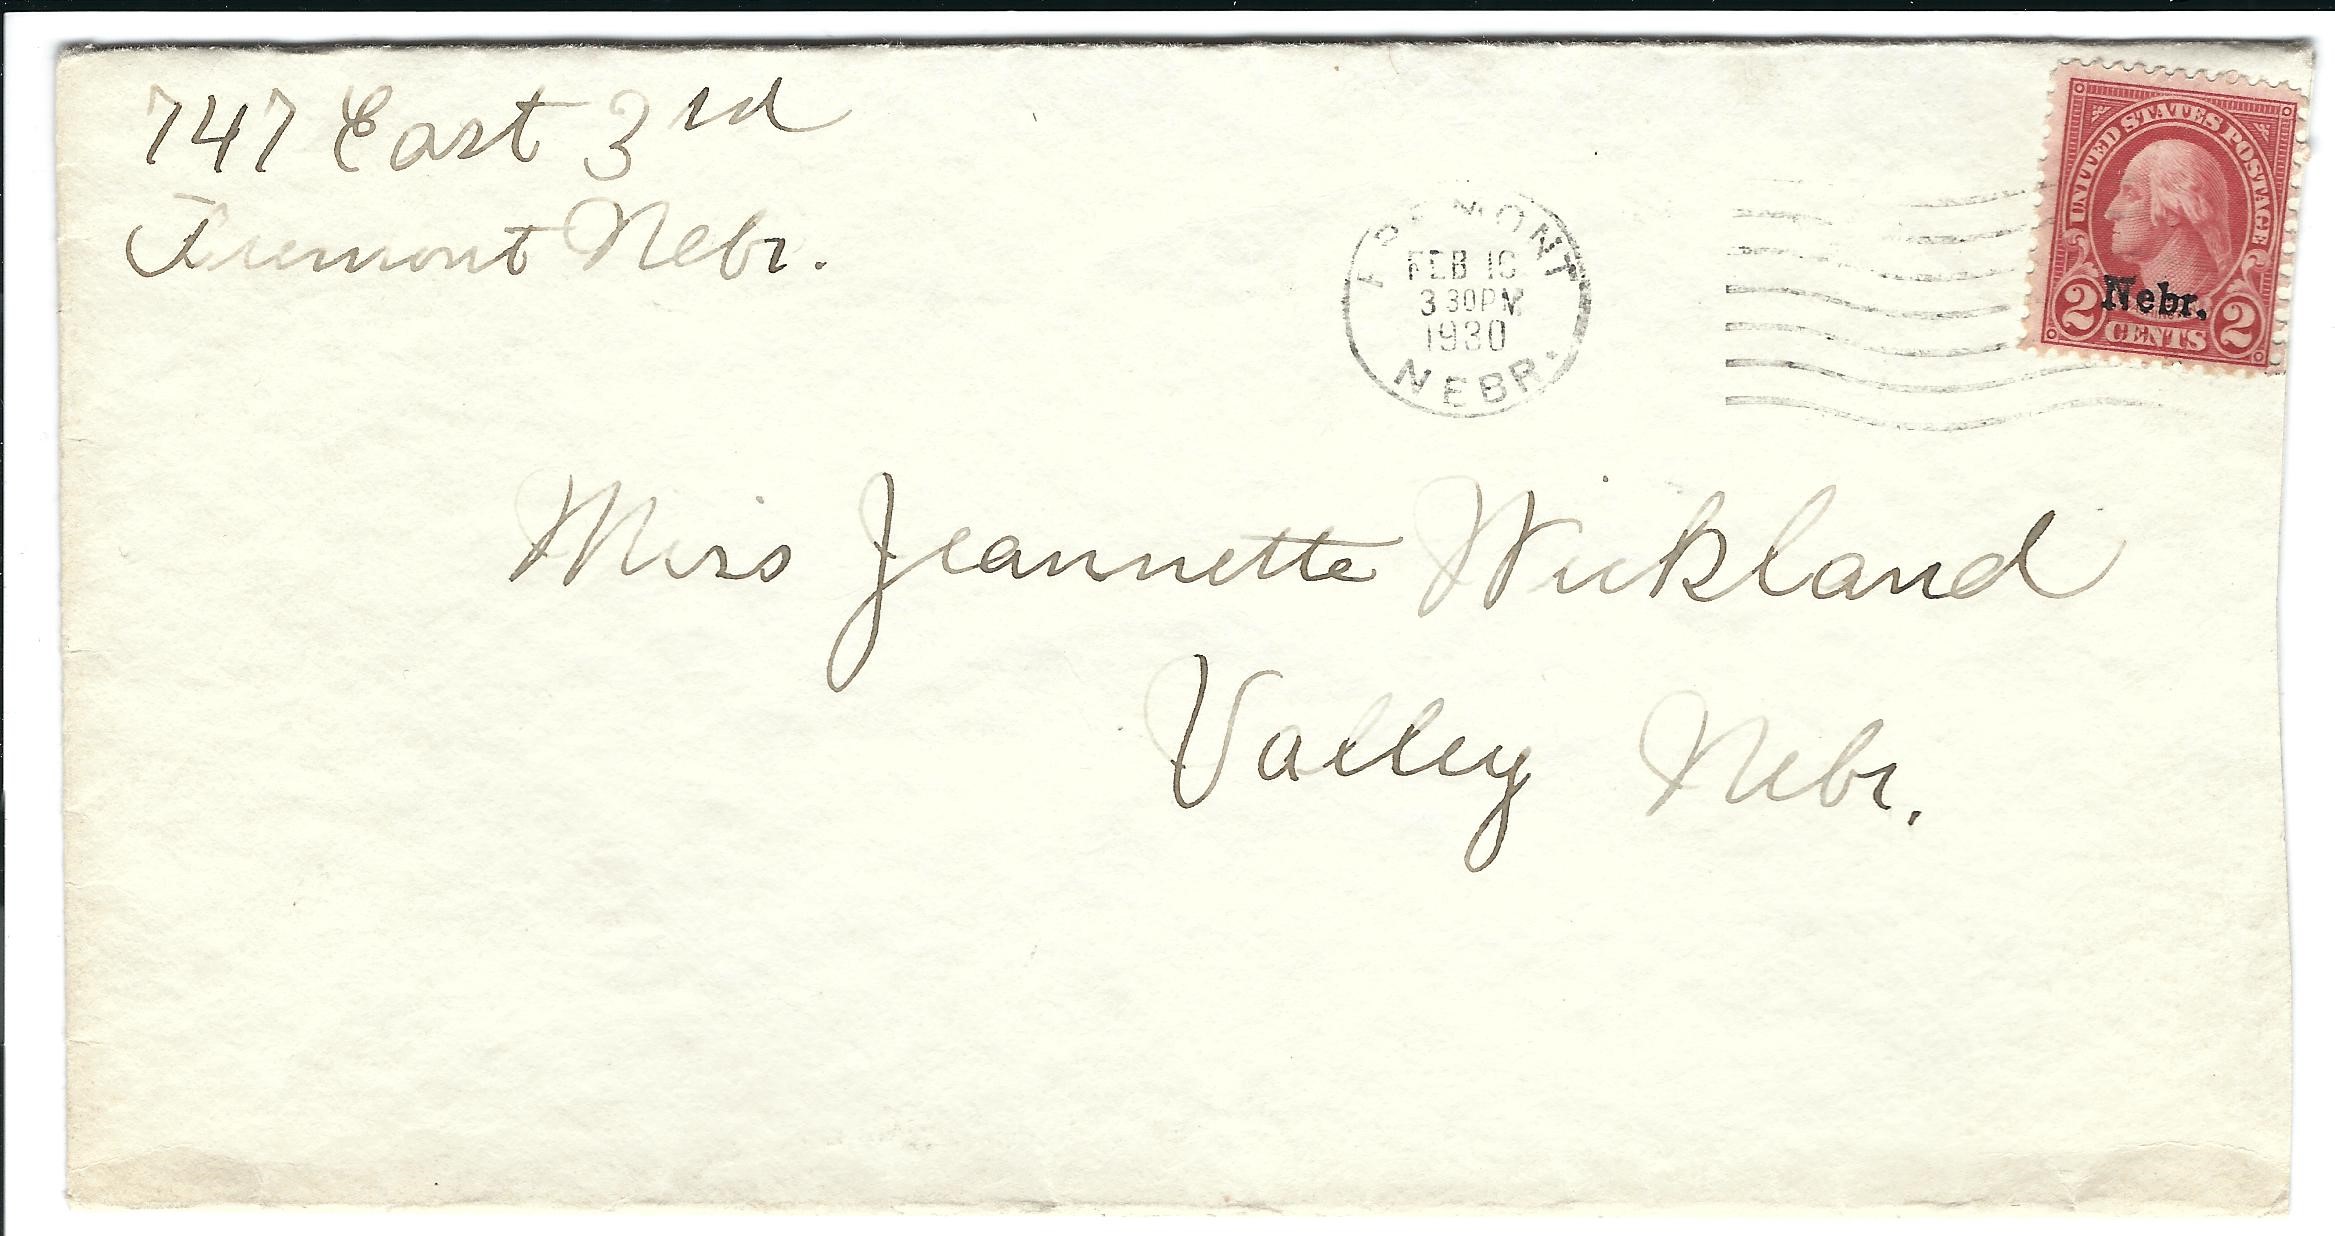 747 East 3rd
Fremont Nebr.
FREMONT
FEB 10
3 30 PM
1930
NEBR.
UNITED STATES POSTAGE
Nebr.
2 CENTS 2
Miss Jeannette Wickland
Valley Nebr.